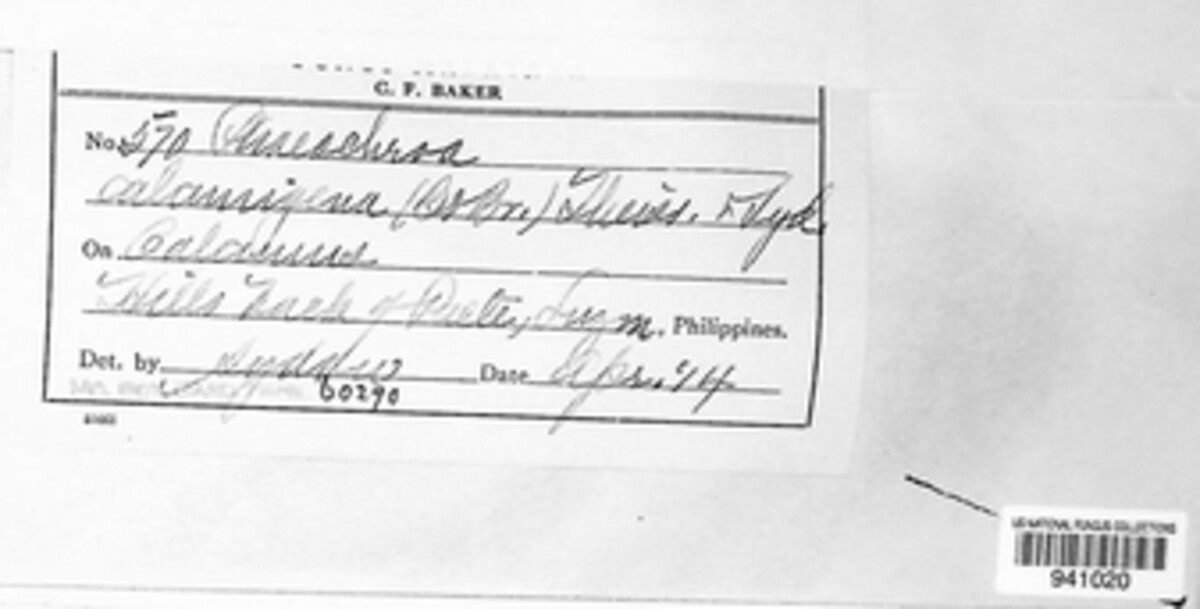 C. F. BAKER
No. 570
calamigena (B&Br.) Theiss. & Syd.
On Calamus
Hills back of Paete, Luzon. Philippines.
Det. by Date Apr. '14
60290
US NATIONAL FUNGUS COLLECTIONS
941020